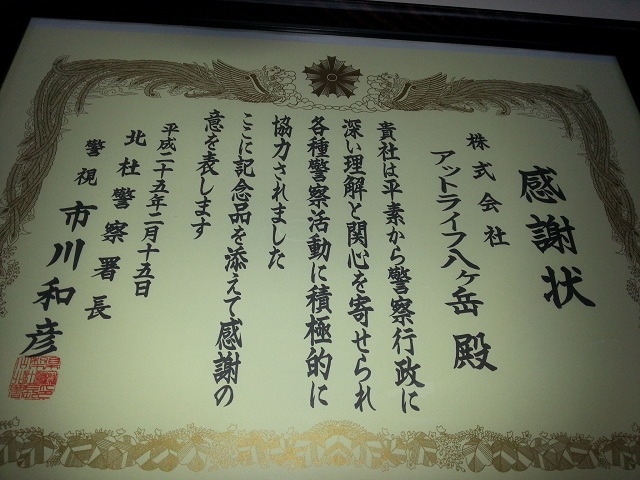 感謝状
株式会社
アットライフ八ヶ岳 殿
貴社は平素から警察行政に
深い理解と関心を寄せられ
各種警察活動に積極的に
協力されました
ここに記念品を添えて感謝の
意を表します
平成二十五年二月十五日
北杜警察署長
警視 市川和彦